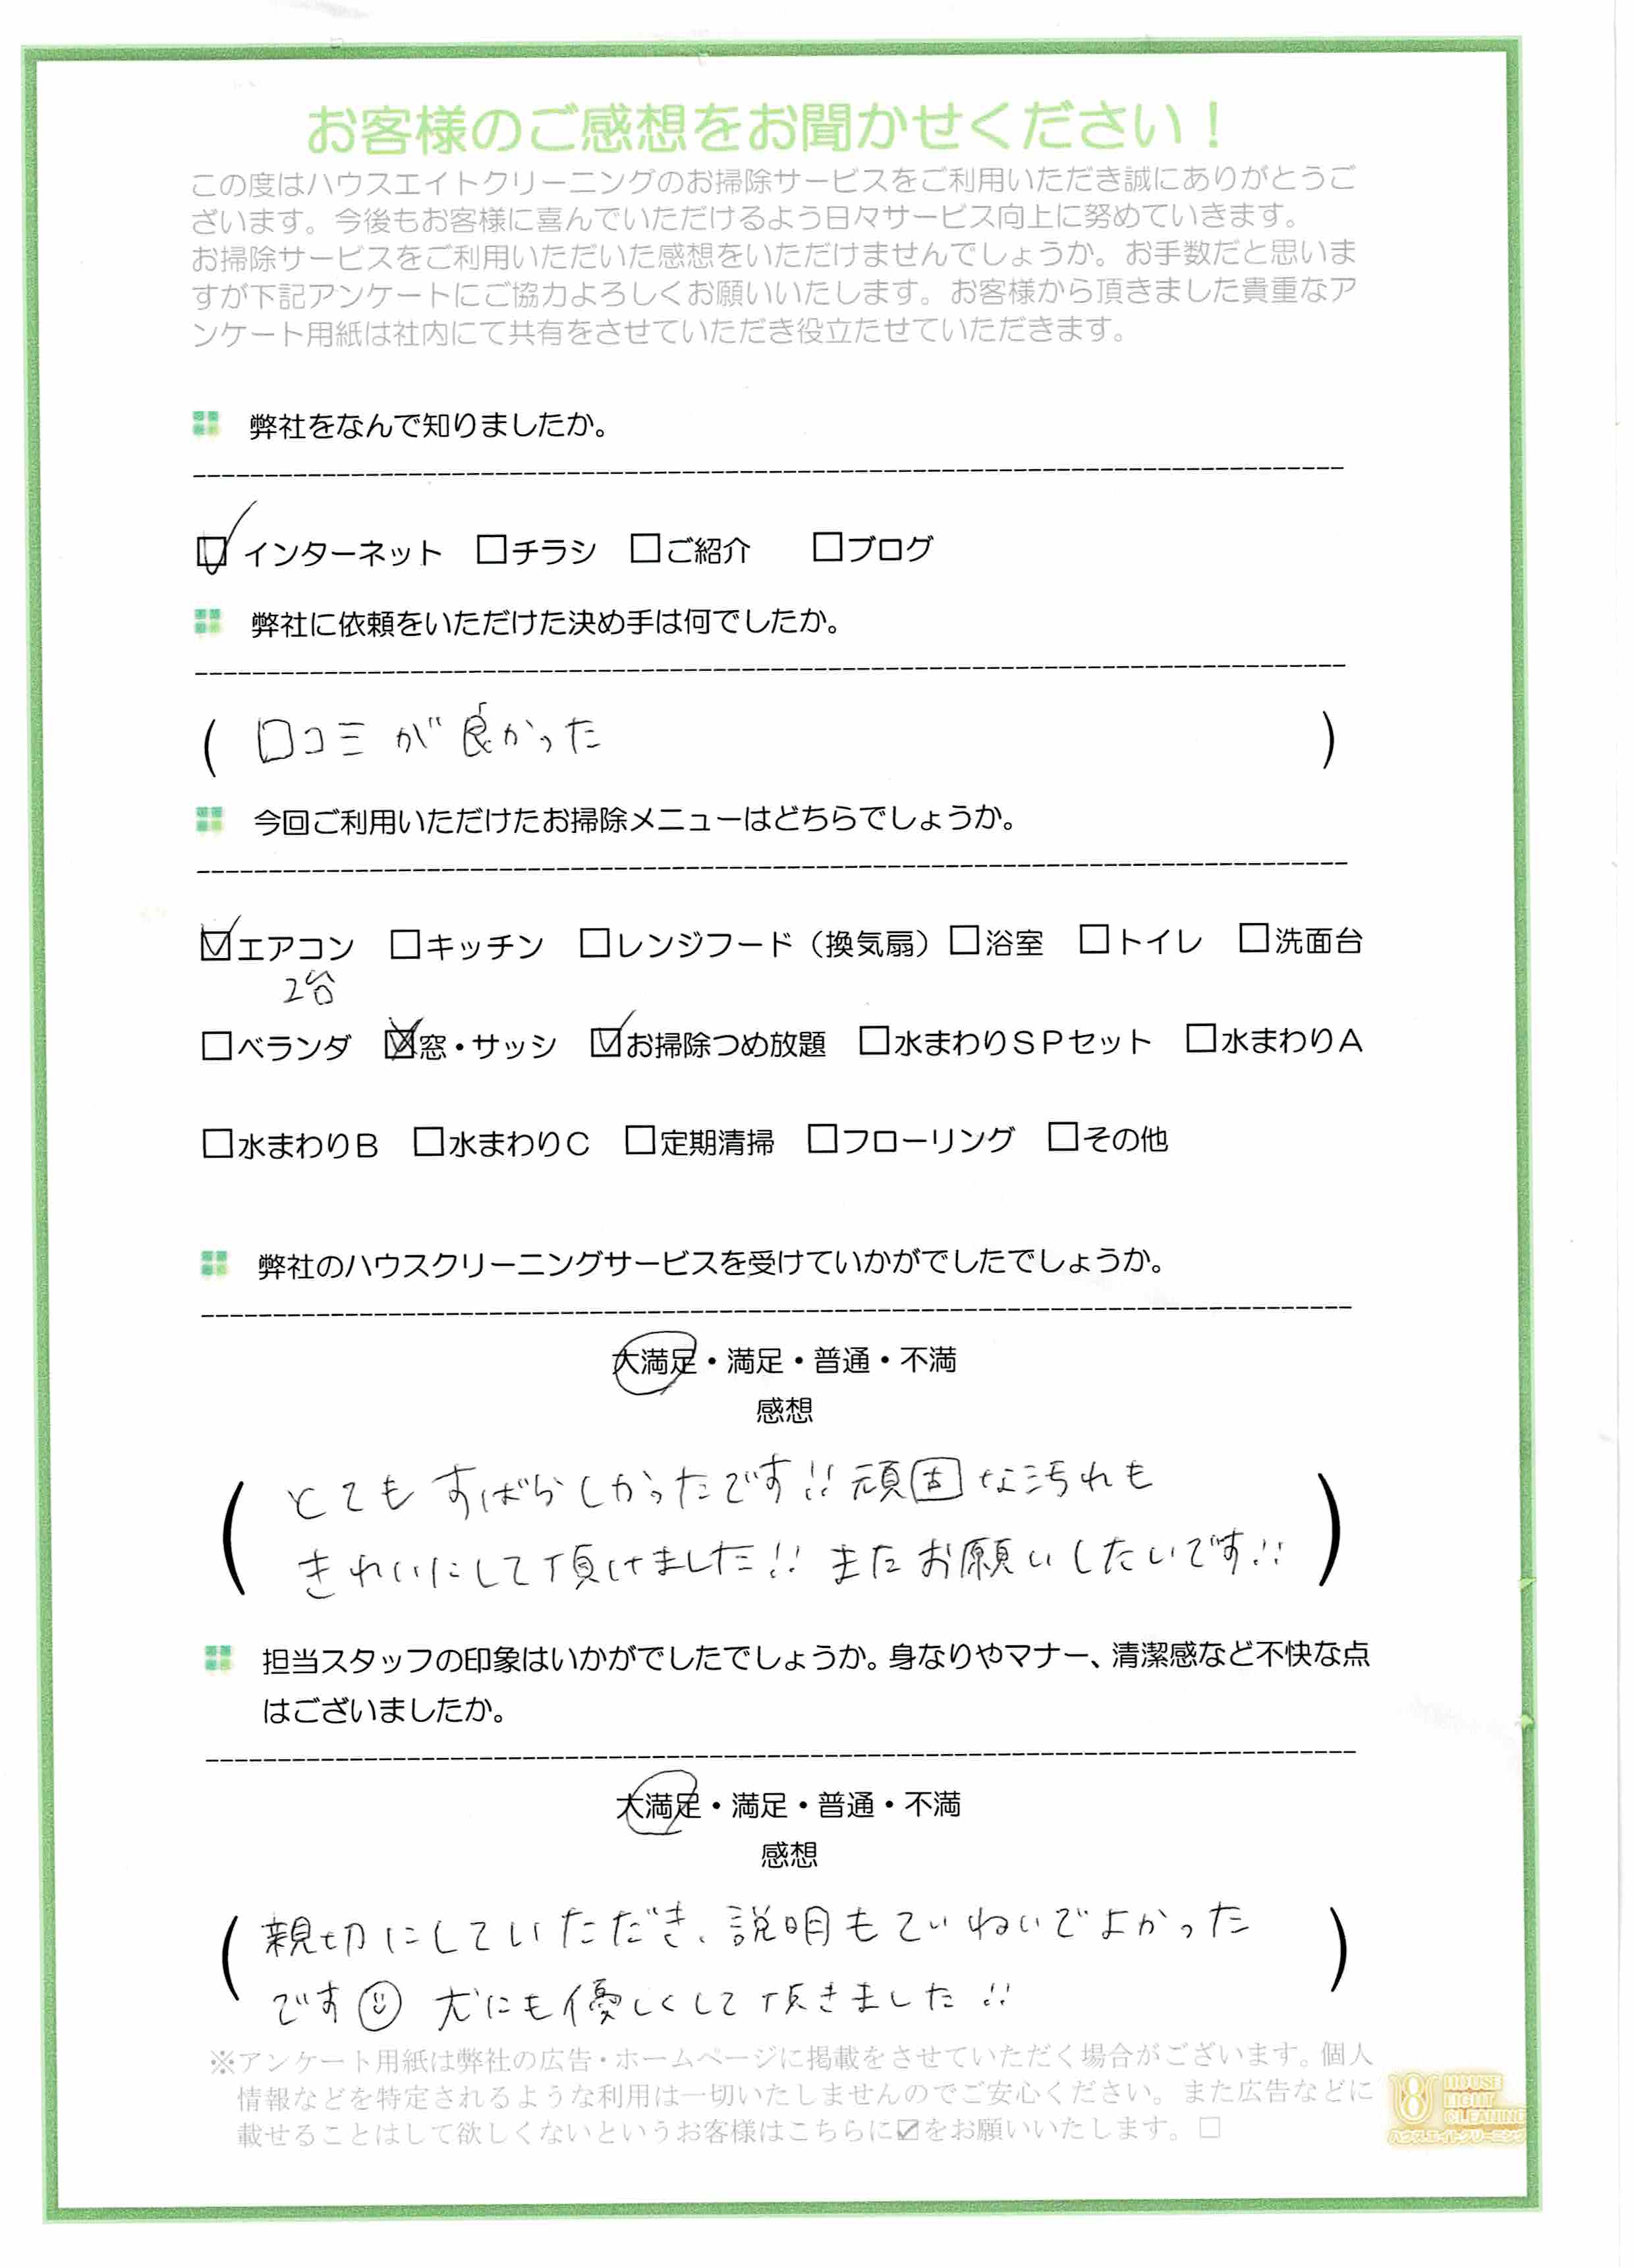 お客様のご感想をお聞かせください！
この度はハウスエイトクリーニングのお掃除サービスをご利用いただき誠にありがとうご
ざいます。今後もお客様に喜んでいただけるよう日々サービス向上に努めていきます。
お掃除サービスをご利用いただいた感想をいただけませんでしょうか。お手数だと思いま
すが下記アンケートにご協力よろしくお願いいたします。お客様から頂きました貴重なア
ンケート用紙は社内にて共有をさせていただき役立たせていただきます。
弊社をなんで知りましたか。
☑インターネット □チラシ □ご紹介 □ブログ
弊社に依頼をいただけた決め手は何でしたか。
( 口コミが良かった )
今回ご利用いただけたお掃除メニューはどちらでしょうか。
☑エアコン □キッチン □レンジフード（換気扇）□浴室 □トイレ □洗面台
2台
□ベランダ ☒窓・サッシ ☑お掃除つめ放題 □水まわりＳＰセット □水まわりＡ
□水まわりＢ □水まわりＣ □定期清掃 □フローリング □その他
弊社のハウスクリーニングサービスを受けていかがでしたでしょうか。
大満足・満足・普通・不満
感想
( とてもすばらしかったです!! 頑固な汚れも
きれいにして頂けました!! またお願いしたいです!! )
担当スタッフの印象はいかがでしたでしょうか。身なりやマナー、清潔感など不快な点
はございましたか。
大満足・満足・普通・不満
感想
( 親切にしていただき、説明もていねいでよかった
です☺ 犬にも優しくして頂きました!! )
※アンケート用紙は弊社の広告・ホームページに掲載をさせていただく場合がございます。個人
情報などを特定されるような利用は一切いたしませんのでご安心ください。また広告などに
載せることはして欲しくないというお客様はこちらに☑をお願いいたします。□
HOUSE
EIGHT
CLEANING
ハウスエイトクリーニング